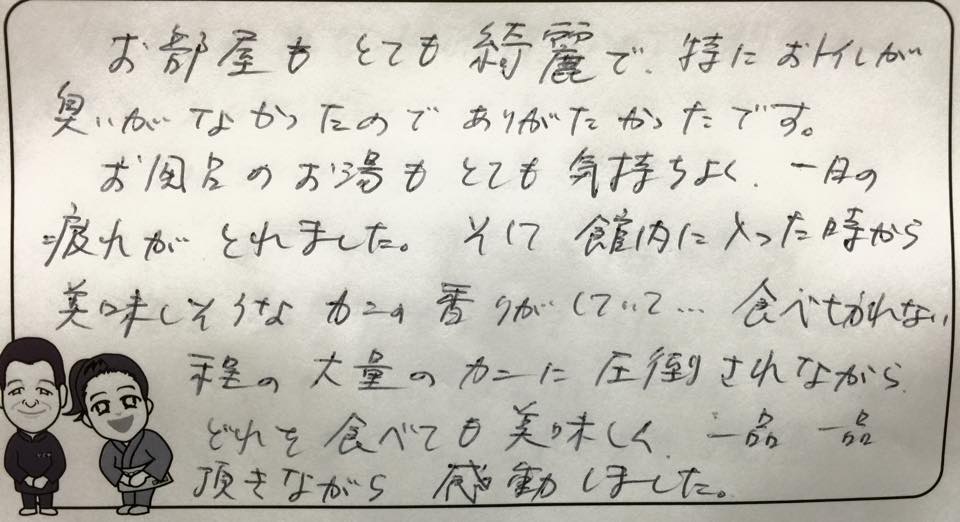 お部屋もとても綺麗で、特におトイレが
臭いがなかったのでありがたかったです。
お風呂のお湯もとても気持ちよく、一日の
疲れがとれました。そして館内に入った時から
美味しそうなカニの香りがしていて…食べきれない
程の大量のカニに圧倒されながら、
どれを食べても美味しく、一品一品
頂きながら感動しました。